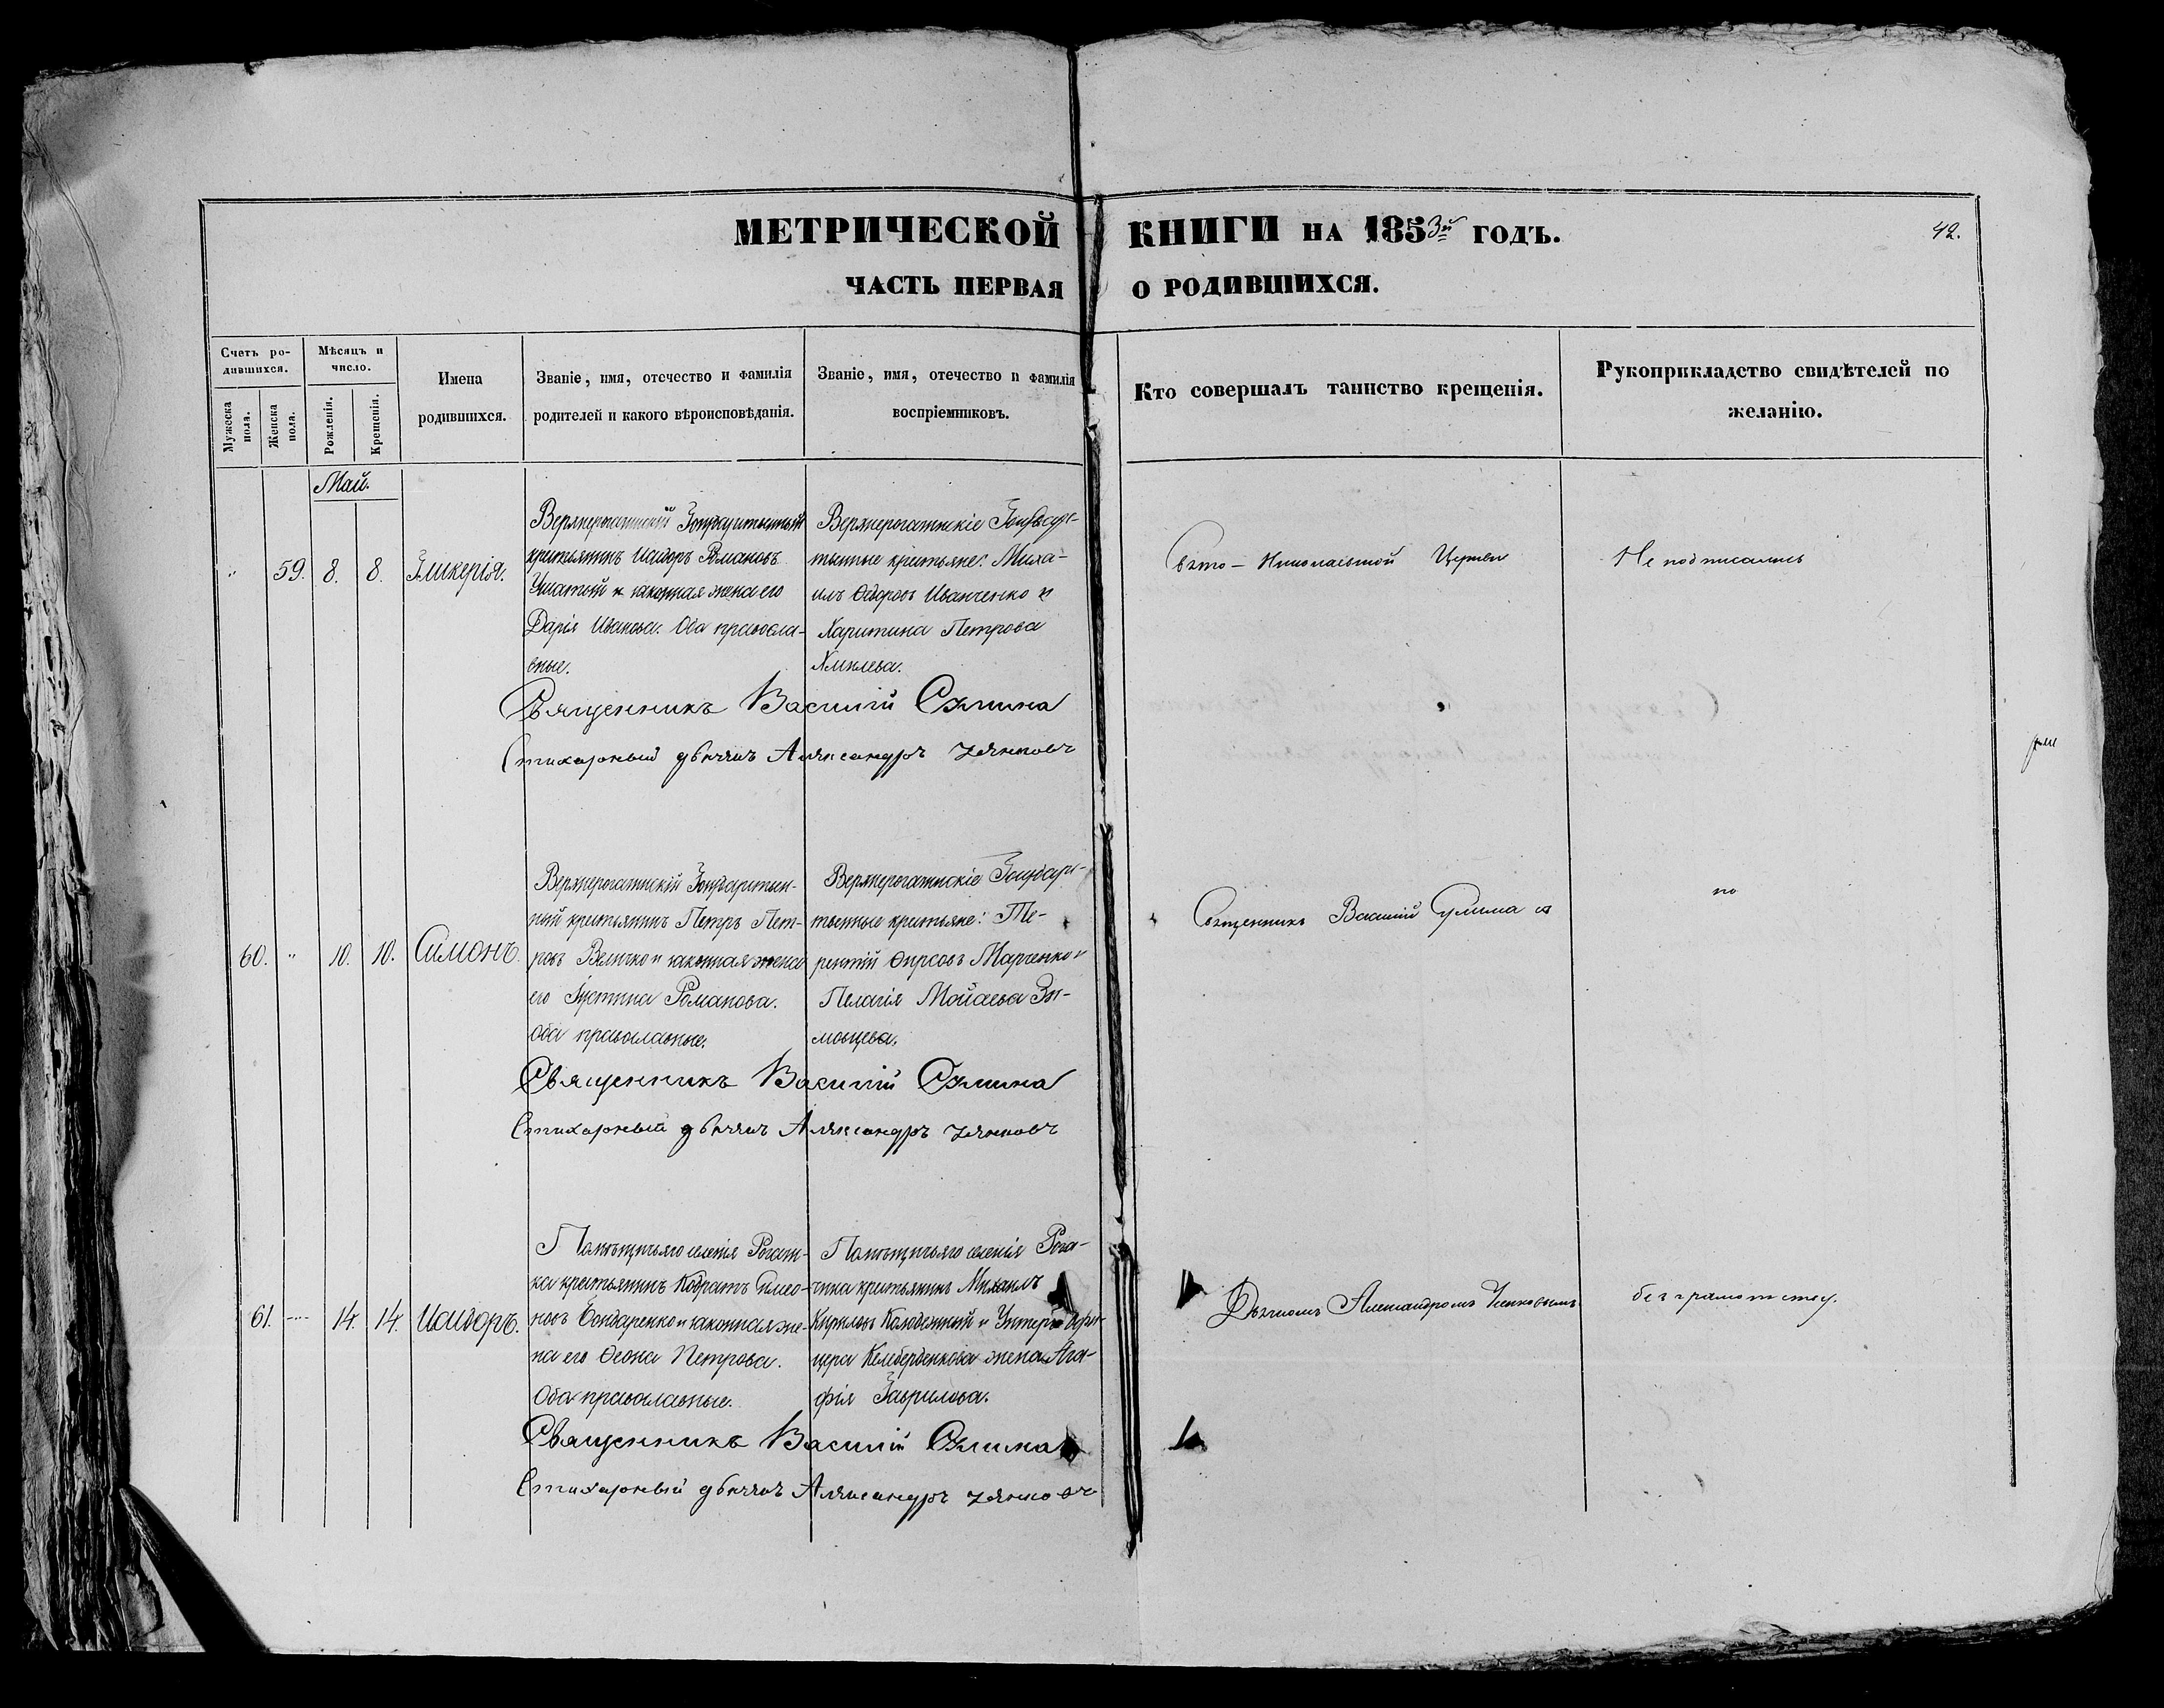 МЕТРИЧЕСКОЙ КНИГИ НА 1853й ГОДЪ.
42.
ЧАСТЬ ПЕРВАЯ О РОДИВШИХСЯ.
Счетъ родившихся.
Мужеска пола.
Женска пола.
Мѣсяцъ и число.
Рожденія.
Крещенія.
Имена родившихся.
Званіе, имя, отечество и фамилія
родителей и какого вѣроисповѣданія.
Званіе, имя, отечество и фамилія
воспріемниковъ.
Кто совершалъ таинство крещенія.
Рукоприкладство свидѣтелей по
желанію.
Май.
" 59. 8. 8. Гликерія.
Верхнерогачикскій Государственный
крестьянинъ Исидоръ Романовъ
и законная жена его
Дарія Иванова. Оба правосла-
вные.
Верхнерогачикскіе Государ-
твенные крестьяне: Миха-
илъ Ѳедоровъ Иванченко и
Харитина Петрова
Свято-Николаевской Церкви
Не подписались
Священникъ Василій Сулима
Стихарный дьячекъ Александръ
60. " 10. 10. Симонъ.
Верхнерогачикскій Государствен-
ный крестьянинъ Петръ Пет-
ровъ Величко и законная жена
его Іустина Романова.
Оба православные.
Верхнерогачикскіе Государ-
твенные крестьяне: Те-
рентій Ѳирсовъ Марченко и
Пелагія Мойсева
Священникъ Василій Сулима съ
по
Священникъ Василій Сулима
Стихарный дьячекъ Александръ
61. " 14. 14. Исидоръ.
Помѣщичьяго селенія Рогачи-
ка крестьянинъ Кодратъ Симео-
новъ Бондаренко и законная же-
на его Ѳеона Петрова.
Оба православные.
Помѣщичьяго селенія Рога-
чика крестьянинъ Михаилъ
Кириловъ Колодяжный и Унтеръ Офи-
цера жена Ага-
фія Гаврилова.
Дьячкомъ Александромъ
безграмотству.
Священникъ Василій Сулима
Стихарный дьячекъ Александръ